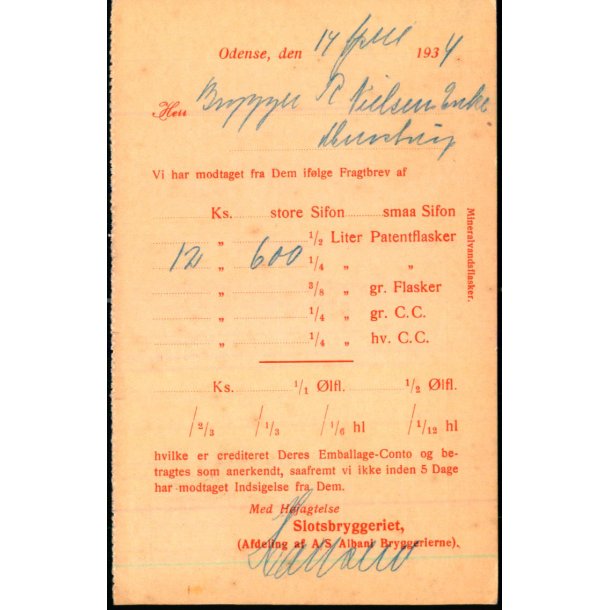 Odense, den 14 April 1934
Herr Brygger R Nielsens Enke
Vi har modtaget fra Dem ifølge Fragtbrev af
Ks. store Sifon smaa Sifon
„ 1/2 Liter Patentflasker
12 „ 600 1/4 „ „
„ 3/8 „ gr. Flasker
„ 1/4 „ gr. C.C.
„ 1/4 „ hv. C.C.
Mineralvandsflasker.
Ks. 1/1 Ølfl. 1/2 Ølfl.
/ 2/3 / 1/3 / 1/6 hl / 1/12 hl
hvilke er crediteret Deres Emballage-Conto og be-
tragtes som anerkendt, saafremt vi ikke inden 5 Dage
har modtaget Indsigelse fra Dem.
Med Højagtelse
Slotsbryggeriet,
(Afdeling af A/S Albani Bryggerierne).